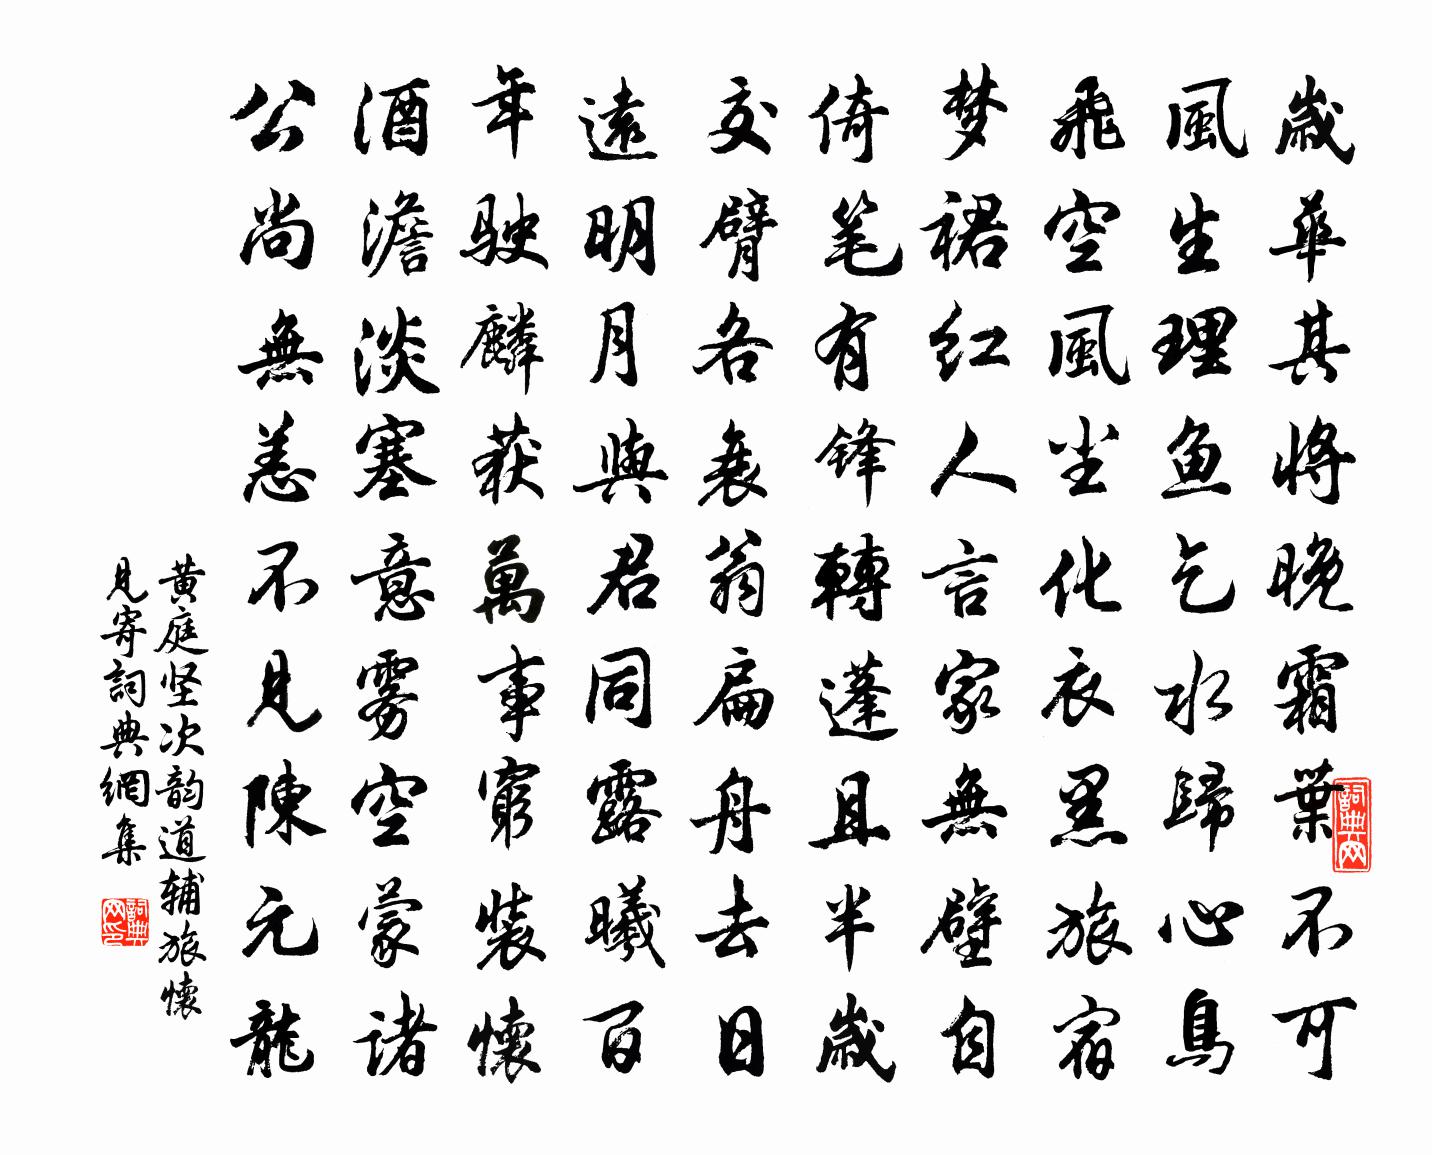 歲華其將晚霜葉不可
風生理鱼乞水歸心鳥
飛空風尘化衣黑旅宿
梦裙红人言家無壁自
倚笔有锋轉蓬且半歲
交臂各衰翁扁舟去日
遠明月與君同露曦百
年駛麟获萬事窮裝懷
酒澹淡塞意雾空蒙诸
公尚無恙不見陳元龍
黄庭坚次韵道辅旅懷
見寄詞典網集
詞典网
詞典网印